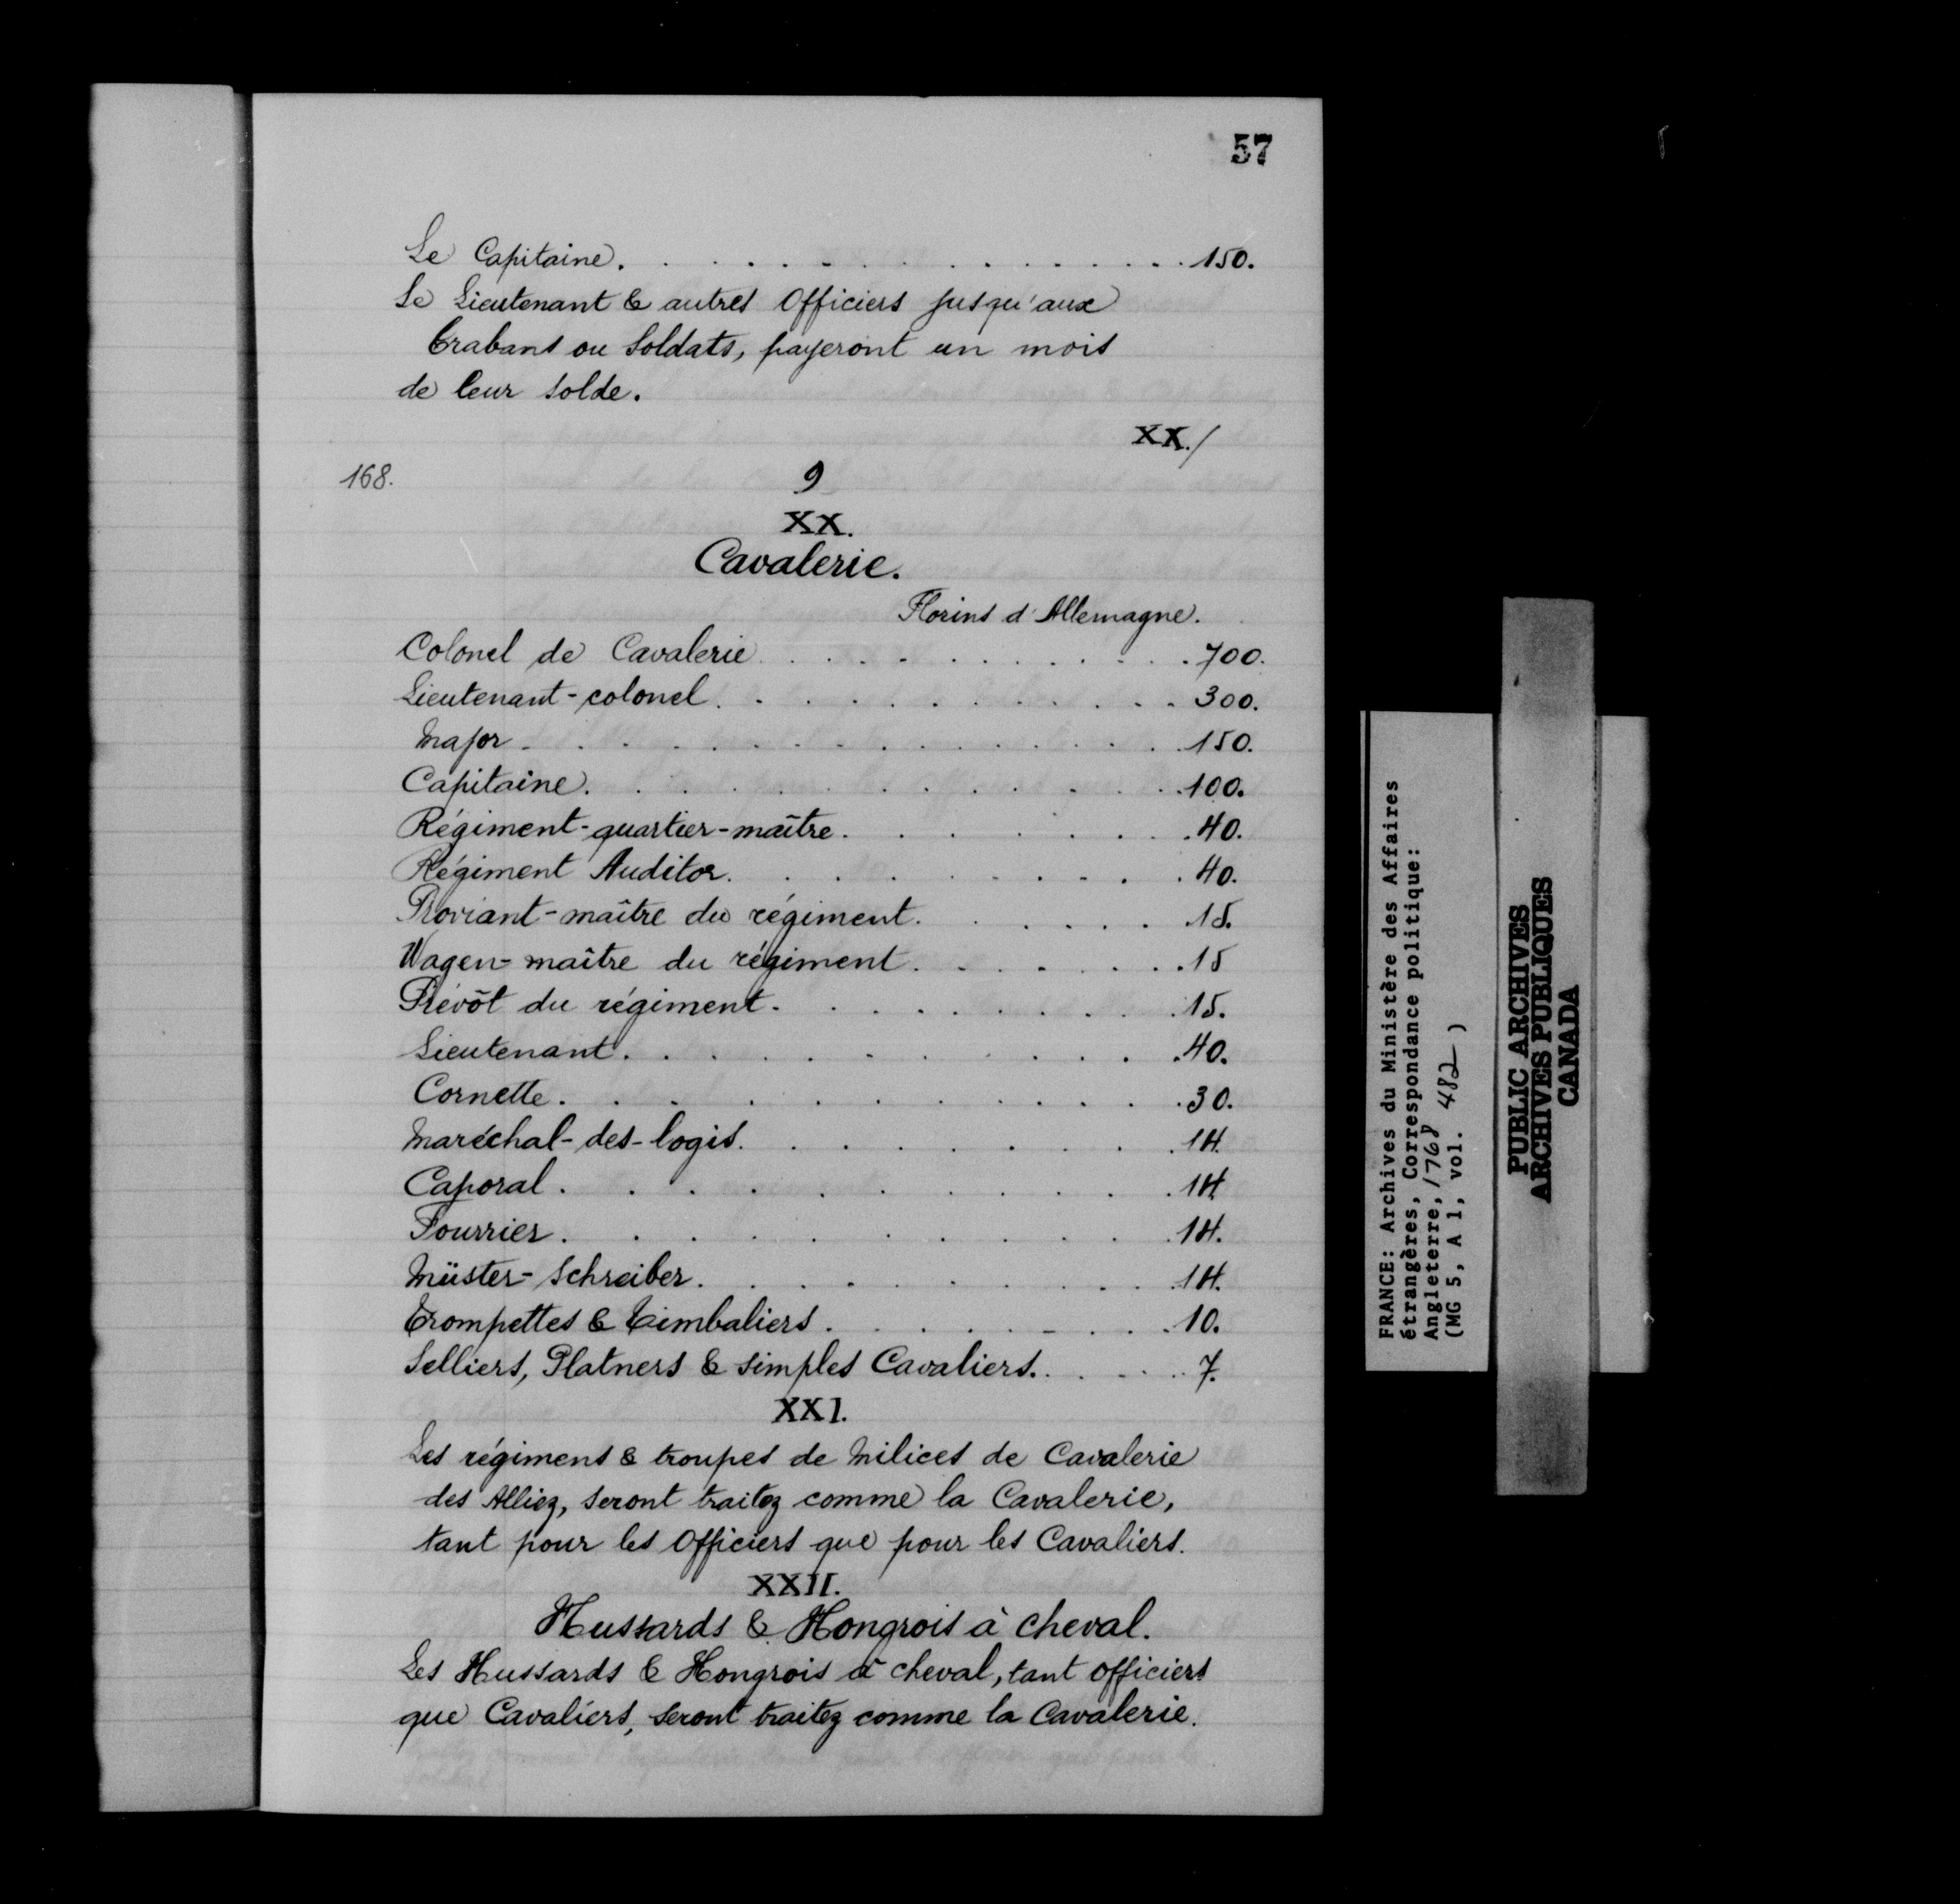 57
Le Capitaine. . . . . . . . . . . . . . . 150.
Le Lieutenant & autres Officiers jusqu'aux
trabans ou soldats, payeront un mois
de leur solde.
XX./
168.
9
XX.
Cavalerie.
Florins d'Allemagne.
Colonel de Cavalerie . . . . . . . . . . . 700.
Lieutenant-colonel. . . . . . . . . . . . 300.
Major . . . . . . . . . . . . . . . 150.
Capitaine. . . . . . . . . . . . . . 100.
Régiment-quartier-maître. . . . . . . . 40.
Régiment Auditor. . . . . . . . . . 40.
Proviant-maître du régiment. . . . . . 15.
Wagen-maître du régiment. . . . . . . 15
Prévôt du régiment. . . . . . . . . . 15.
Lieutenant. . . . . . . . . . . . . 40.
Cornette. . . . . . . . . . . . . . 30.
Maréchal-des-logis. . . . . . . . . . 14.
Caporal . . . . . . . . . . . . . 14.
Fourrier. . . . . . . . . . . . . 14.
Müster-Schreiber. . . . . . . . . . . 14.
Trompettes & Timbaliers. . . . . . . . . 10.
Selliers, Platners & simples Cavaliers. . . . . . 7.
XXI.
Les régiments & troupes de Milices de Cavalerie
des Alliez, seront traitez comme la Cavalerie,
tant pour les Officiers que pour les Cavaliers.
XXII.
Hussards & Hongrois à cheval.
Les Hussards & Hongrois à cheval, tant officiers
que Cavaliers, seront traitez comme la Cavalerie.
FRANCE: Archives du Ministère des Affaires
étrangères, Correspondance politique:
Angleterre, 1768
(MG 5, A 1, vol. 482)
PUBLIC ARCHIVES
ARCHIVES PUBLIQUES
CANADA